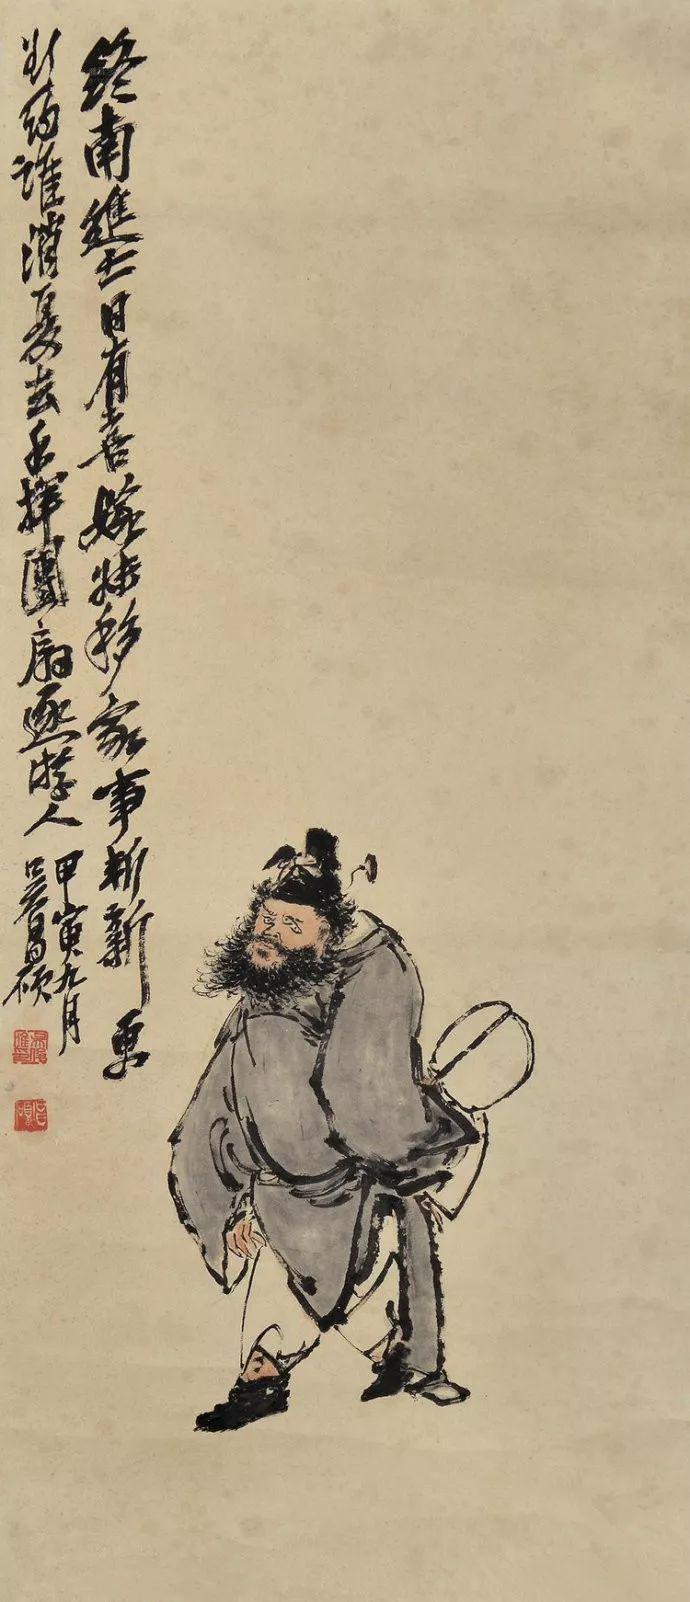 終南進士日有喜嫁妹移家事斬新更
約誰消夏去手揮團扇逐游人
甲寅九月
吳昌碩